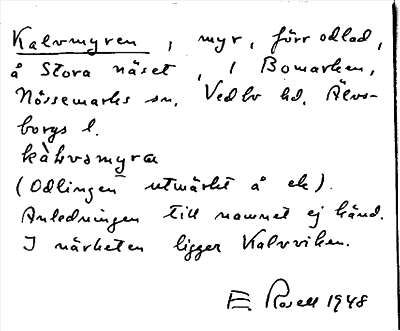 Kalvmyren, myr, förr odlad,
å Stora näset, i Bomarken,
Nössemarks sn, Vedbo hd, Älvs-
borgs l.
kàlvsmyra
(Odlingen utmärkt å ek).
Anledningen till namnet ej känd.
I närheten ligger Kalvviken.
E. Rosell 1948